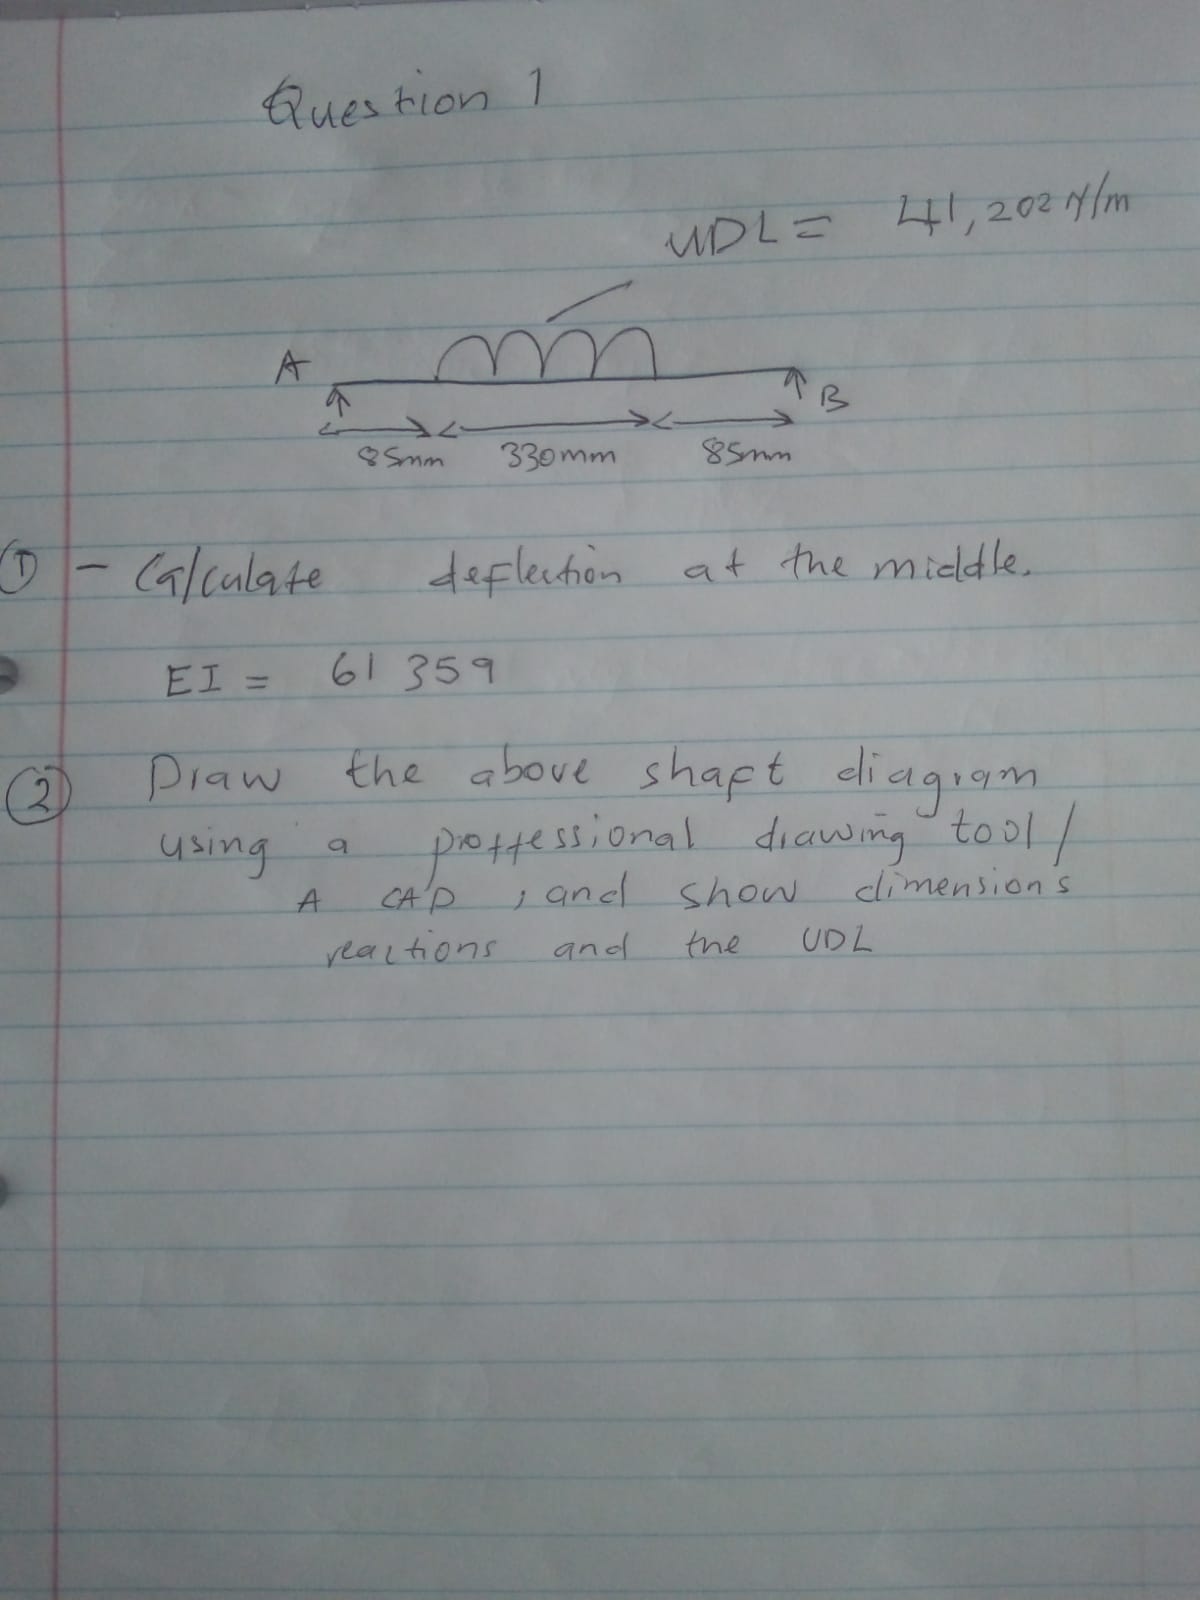 Question 1
UDL = 41,202 N/m
A
B
85mm 330mm 85mm
① - Calculate deflection at the middle.
EI = 61 359
② Draw the above shaft diagram
using a proffessional drawing tool /
A CAD , and show dimensions
reactions and the UDL